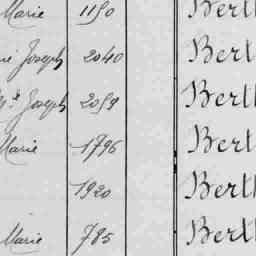 Marie 1150 Berth
Joseph 2040 Berth
Joseph 2059 Berth
Marie 1796 Berth
1920 Berth
Marie 785 Berth